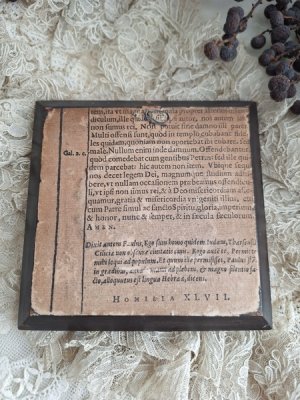 tiens, ita ut magna
diculum, ille
non simus rei, Non
Multi offensi sunt, quod in templo cubabant fide-
les quidam, quoniam non oportebat ibi cubare. Sed
male. Nullum enim inde damnum. Offendebantur
quod comedebat cum gentibus Petrus: sed ille qui-
dem parcebat: hic autem non item. Ubique sequi
nos decet legem Dei, magnumque studium adhi-
bere, ut nullam occasionem præbeamus offendicu-
li, ut ipsi non simus rei, & à Domino misericordiam asse-
quamur, gratia & misericordia unigeniti illius,
cum Patre simul ac sancto Spiritu, gloria, imperium
& honor, nunc & semper, & in sæcula sæculorum,
AMEN.
Gal. 2. c.
Dixit autem Paulus, Ego sum homo quidem Iudæus, Tharsensis
Ciliciæ non obscuræ civitatis civis. Rogo autem te, Permitte
mihi loqui ad populum. Et quum ille permisisset, Paulus stans
in gradibus, annuit manu ad plebem, & magno silentio fa-
cto, alloquutus est lingua Hebraica, dicens.
HOMILIA XLVII.